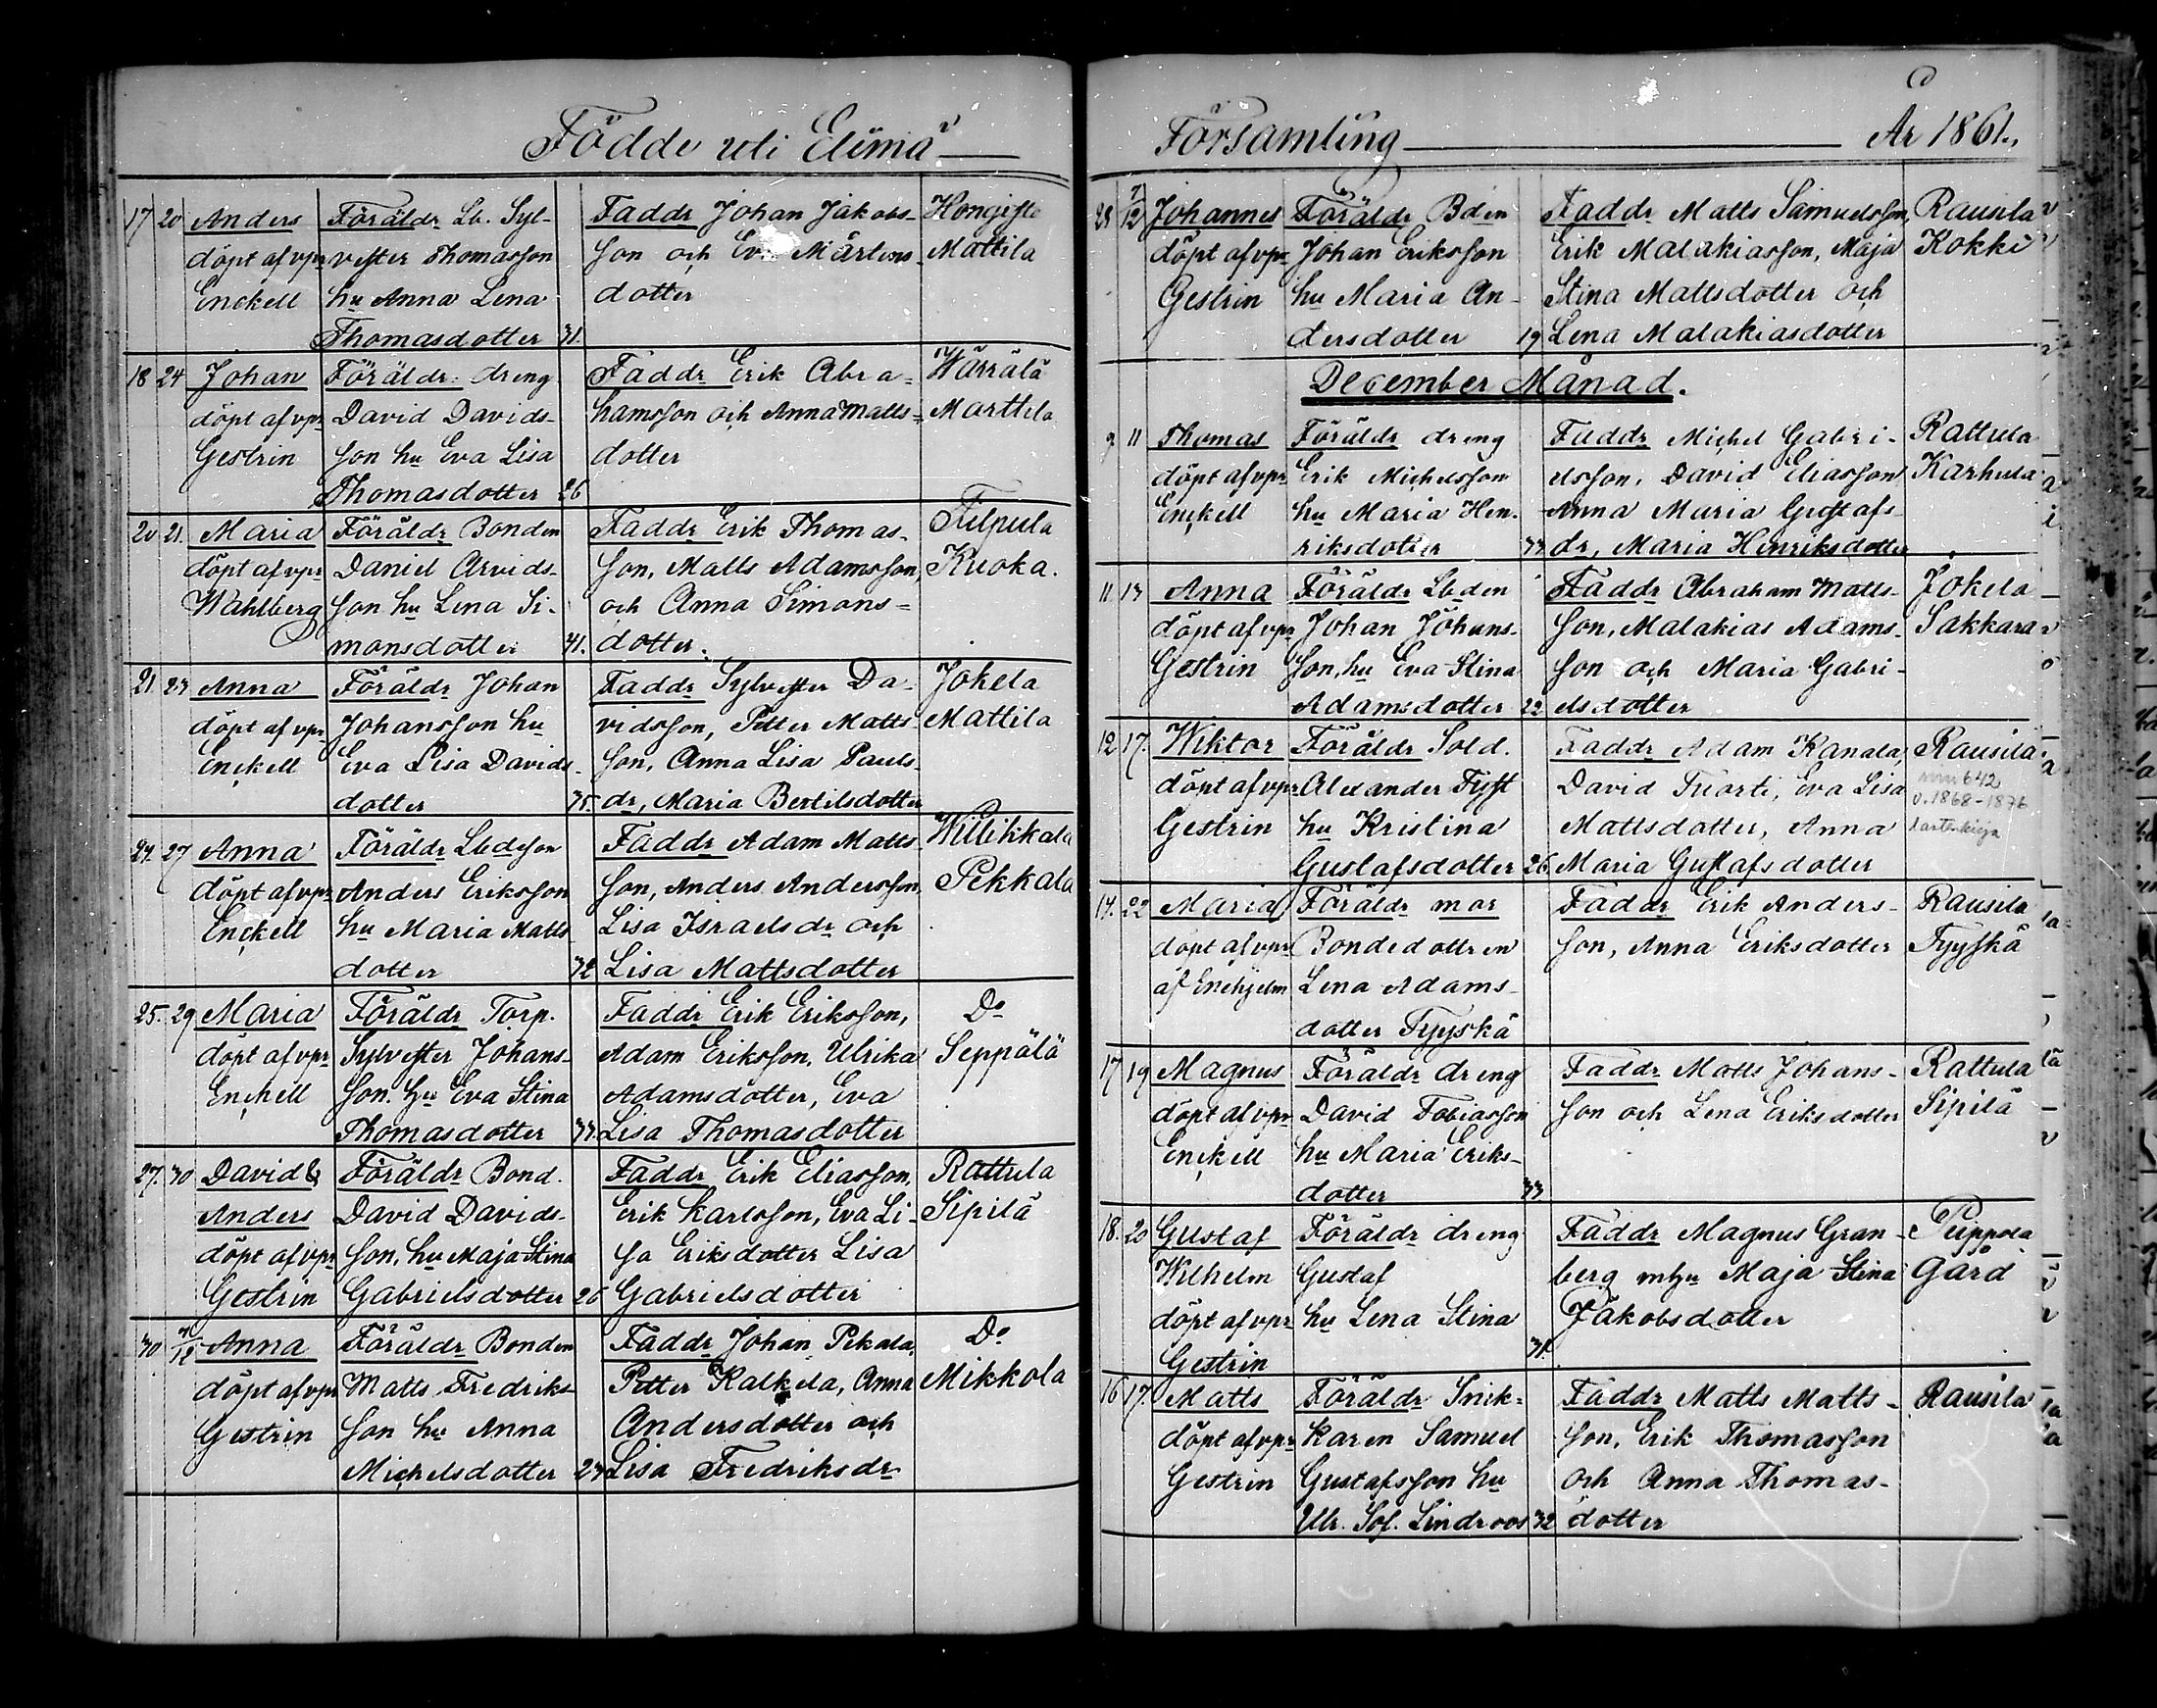 Födde uti Elimä
17 20 Anders Föräldr Lb. Syl- Faddr Johan Jakobs- Hongisto
döpt af vpr vester Thomasson son och Eva Mårtens- Mattila
Enckell hu Anna Lena dotter
Thomasdotter 31.
18 24 Johan Föräldr: dreng Faddr Erik Abra- Wärrälä
döpt af vpr David Davids- hamsson och Anna Matts- Marttila
Gestrin son hu Eva Lisa dotter
Thomasdotter 26
20 21. Maria Föräldr Bonden Faddr Erik Thomas- Filpula
döpt af vpr Daniel Arvids- son, Matts Adamsson, Kuoka.
Wahlberg son hu Lena Si- och Anna Simons-
monsdotter 41. dotter.
21. 23 Anna Föräldr Johan Faddr Sylvester Da- Jokela
döpt af vpr Johansson hu vidsson, Petter Matts- Mattila
Enckell Eva Lisa Davids- son, Anna Lisa Pauls-
dotter 35. dr, Maria Bertilsdotter
24. 27 Anna Föräldr Lbdeson Faddr Adam Matts- Willikkala
döpt af vpr Anders Eriksson son, Anders Andersson, Pekkala
Enckell hu Maria Matts- Lisa Israelsdr och
dotter 32 Lisa Mattsdotter
25. 29 Maria Föräldr Torp. Faddr Erik Eriksson, Do
döpt af vpr Sylvester Johans- Adam Eriksson, Ulrika Seppälä
Enckell son. hu Eva Stina Adamsdotter, Eva
Thomasdotter 33. Lisa Thomasdotter
27. 30 David & Föräldr Bond. Faddr Erik Eliasson, Rattula
Anders David Davids- Erik Karlsson, Eva Li- Sipilä
döpt af vpr son, hu Maja Stina sa Eriksdotter Lisa
Gestrin Gabrielsdotter 26 Gabrielsdotter
30 /12 Anna Föräldr Bonden Faddr Johan Pekala, Do
döpt af vpr Matts Fredriks- Petter Kalkela, Anna Mikkola
Gestrin son hu Anna Andersdotter och
Michelsdotter 23 Lisa Fredriksdr
Församling År 1861.
28 7/12 Johannes Föräldr Bden Faddr Matts Samuelsson, Rausila
döpt af vpr Johan Eriksson Erik Malakiasson, Maja Kokki
Gestrin hu Maria An- Stina Mattsdotter och
dersdotter 19 Lena Malakiasdotter
December Månad.
9 11 Thomas Föräldr dreng Faddr Michel Gabri- Rattula
döpt af vpr Erik Michelsson elsson, David Eliasson Karhula
Enckell hu Maria Hen- Anna Maria Gustafs-
riksdotter 33 dr, Maria Henriksdotter
11 13 Anna Föräldr Lbden Faddr Abraham Matts- Jokela
döpt af vpr Johan Johans- son, Malakias Adams- Sakkara
Gestrin son, hu Eva Stina son och Maria Gabri-
Adamsdotter 22 elsdotter
12 17. Wiktor Föräldr Sold. Faddr Adam Kanala, Rausila
döpt af vpr Alexander Fyst David Tuorti, Eva Lisa mm 642
v. 1868-1876
Gestrin hu Kristina Mattsdotter, Anna
Gustafsdotter 26. Maria Gustafsdotter
14. 22 Maria Föräldr mor Faddr Erik Anders- Rausila
döpt af vpr Bondedottren son, Anna Eriksdotter Tyyskä
af Enehjelm Lena Adams-
dotter Tyyskä
17 19 Magnus Föräldr dreng Faddr Matts Johans- Rattula
döpt af vpr David Tobiasson son och Lena Eriksdotter Sipilä
Enckell hu Maria Eriks-
dotter 33
18. 20 Gustaf Föräldr dreng Faddr Magnus Gran- Peippola
Wilhelm Gustaf berg m hu Maja Stina Gård
döpt af vpr hu Lena Stina Jakobsdotter
Gestrin 31.
16 17. Matts Föräldr Snik- Faddr Matts Matts- Rausila
döpt af vpr karen Samuel son, Erik Thomasson
Gestrin Gustafsson hu och Anna Thomas-
Ulr. Sof. Lindroos 32 dotter